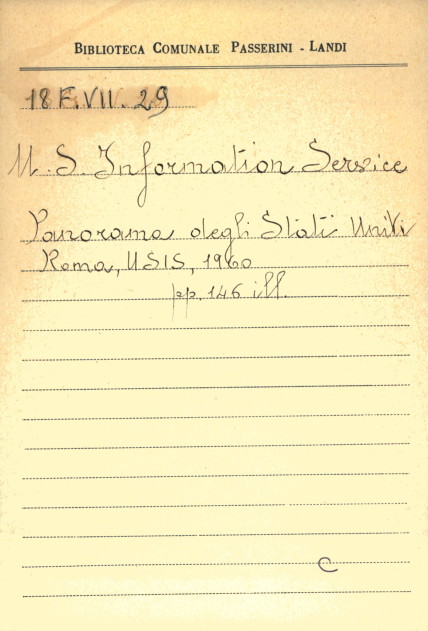 BIBLIOTECA COMUNALE PASSERINI - LANDI
18 F.VII.29
U.S. Information Service
Panorama degli Stati Uniti
Roma, USIS, 1960
pp. 146 ill.
C